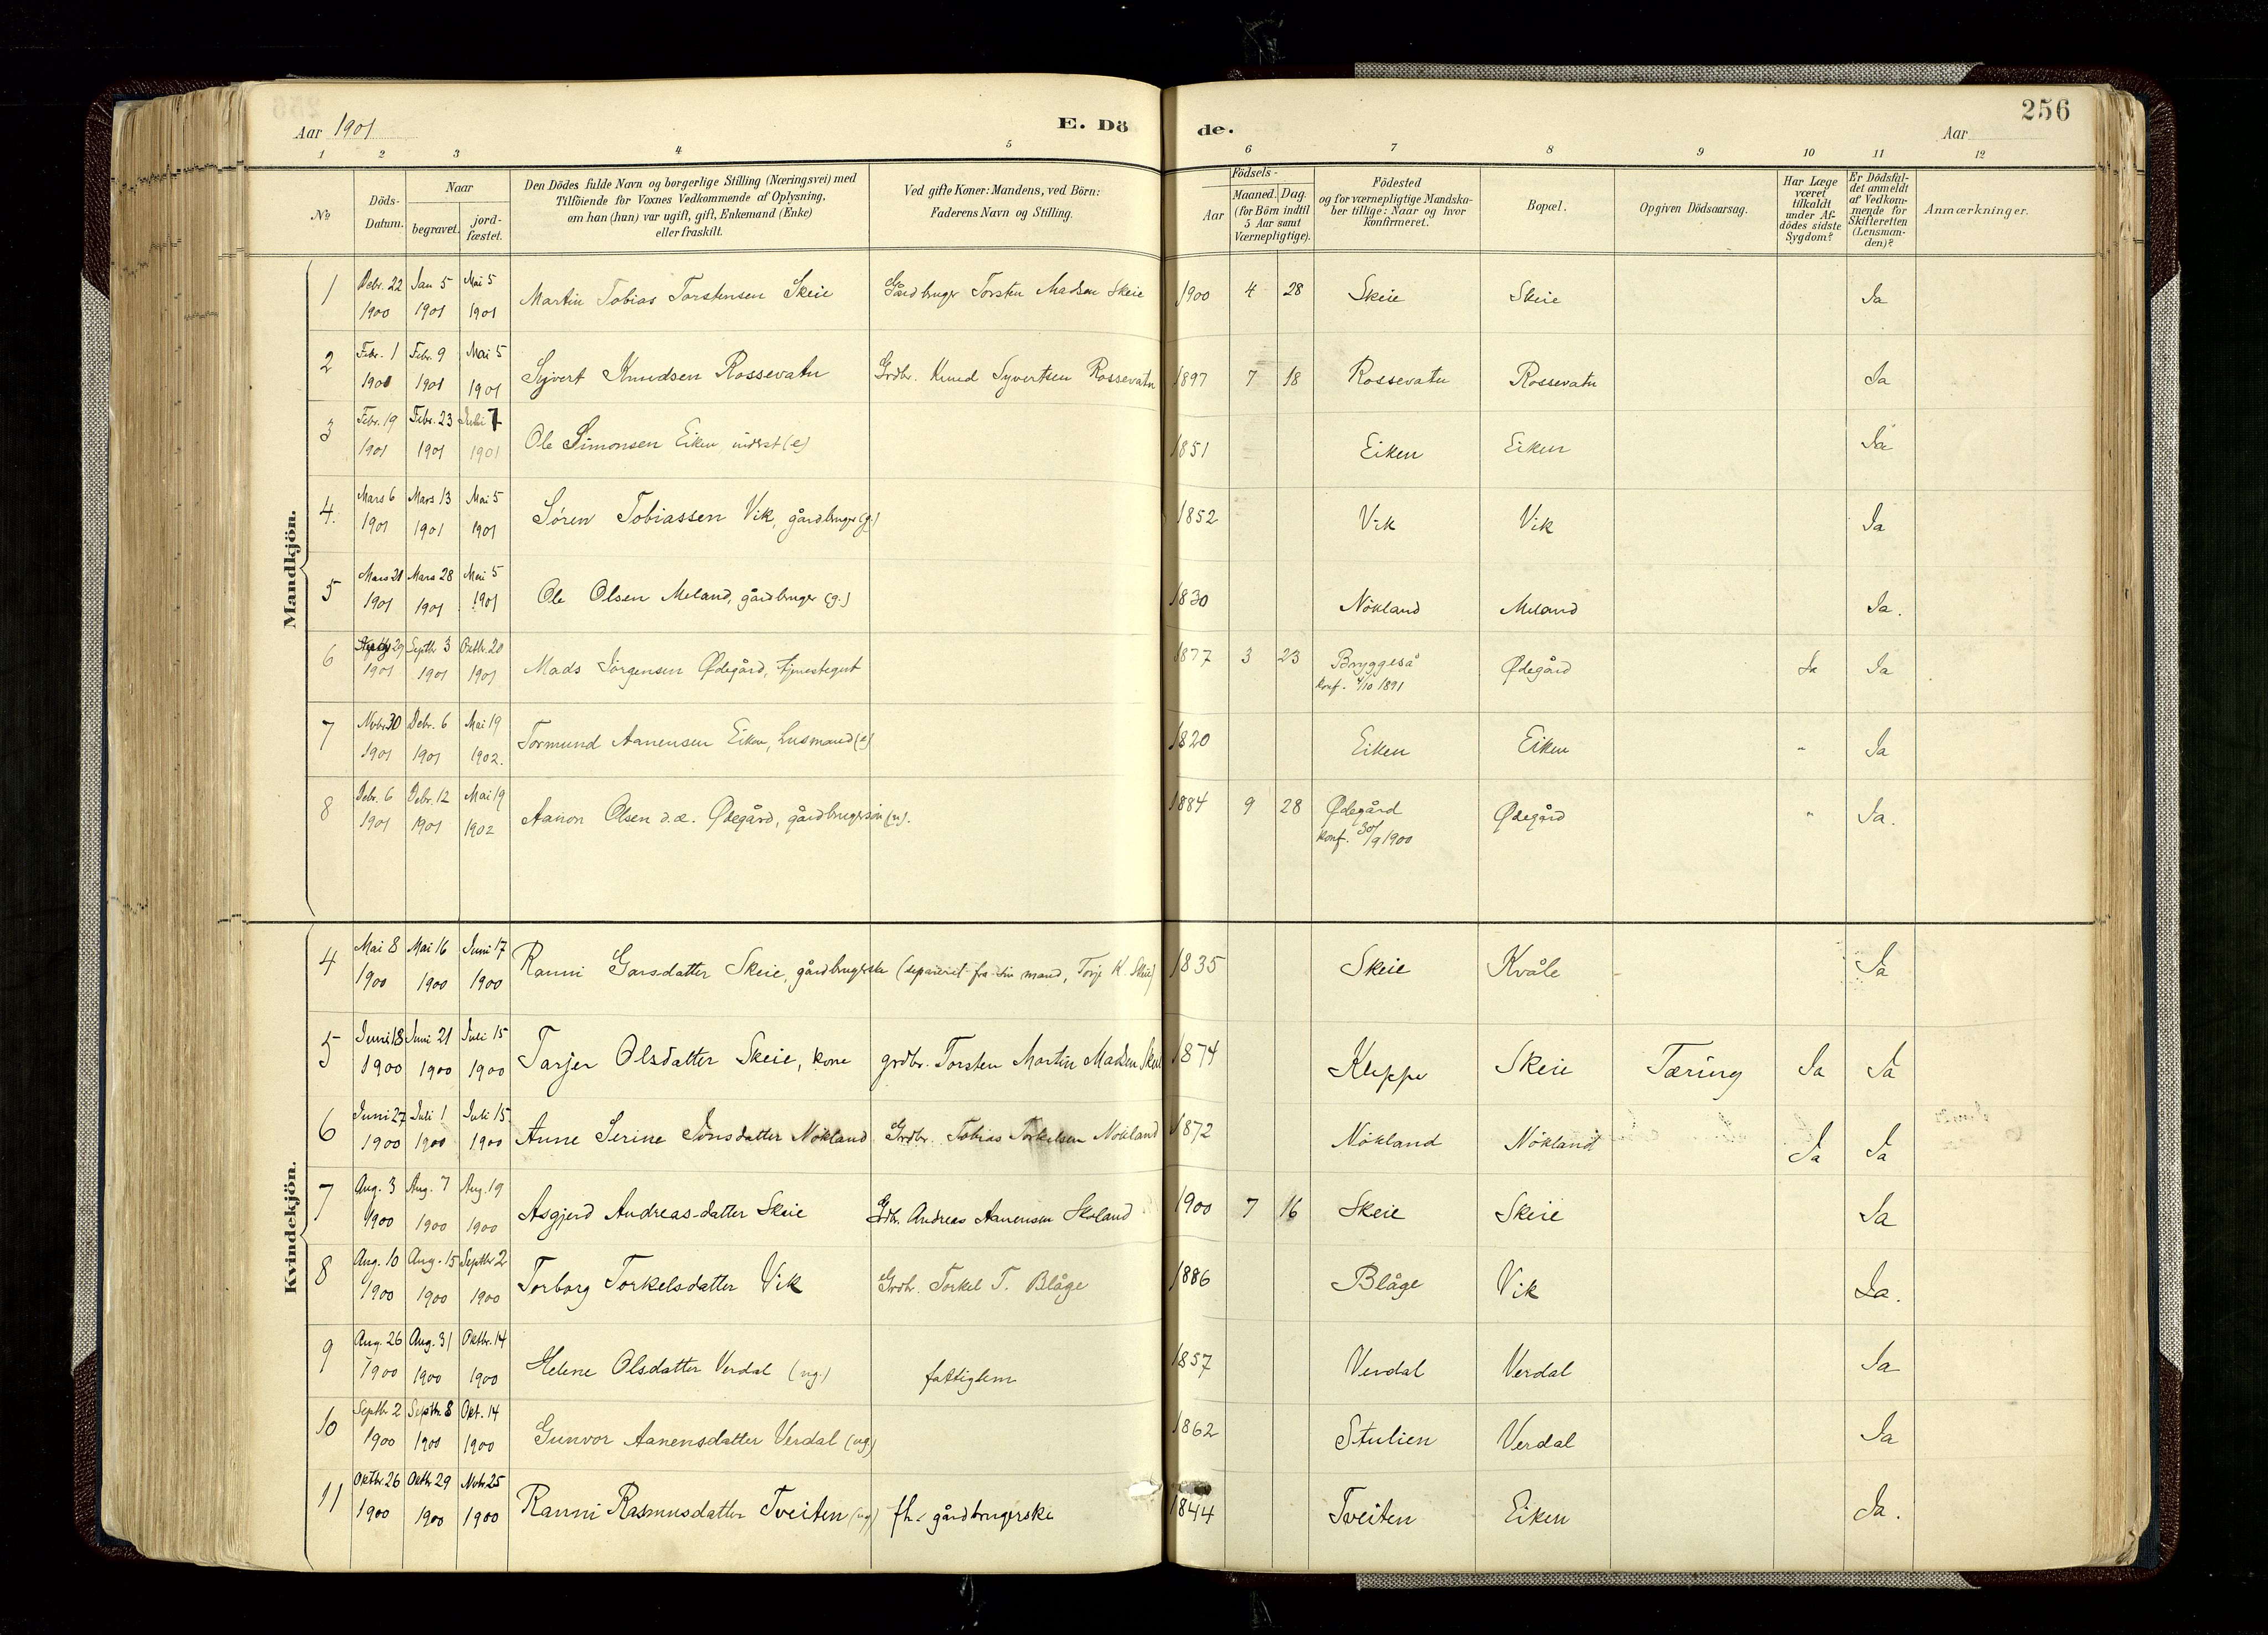 256
Aar 1901
E. Dö de.
Aar
1 2 3 4 5 6 7 8 9 10 11 12
№
Döds-Datum.
Naar
begravet.
jord-fæstet.
Den Dödes fulde Navn og borgerlige Stilling (Næringsvei) med
Tilföiende for Voxnes Vedkommende af Oplysning,
om han (hun) var ugift, gift, Enkemand (Enke)
eller fraskilt.
Ved gifte Koner: Mandens, ved Börn:
Faderens Navn og Stilling.
Födsels-
Aar
Maaned. Dag.
(for Börn indtil
5 Aar samt
Værnepligtige).
Födested
og for værnepligtige Mandska-
ber tillige: Naar og hvor
konfirmeret.
Bopæl.
Opgiven Dödsaarsag.
Har Læge
været
tilkaldt
under Af-
dödes sidste
Sygdom?
Er Dödsfal-
det anmeldt
af Vedkom-
mende for
Skifteretten
(Lensman-
den)?
Anmærkninger.
Mandkjön.
1 Debr. 22 1900 Jan 5 1901 Mai 5 1901 Martin Tobias Torstensen Skeie Gårdbruger Torsten Madsen Skeie 1900 4 28 Skeie Skeie Ja
2 Febr. 1 1901 Febr. 9 1901 Mai 5 1901 Syvert Knudsen Rossevatn Grdbr. Knud Syvertsen Rossevatn 1897 7 18 Rossevatn Rossevatn Ja
3 Febr. 19 1901 Febr. 23 1901 Juli 7 1901 Ole Simonsen Eiken, inderst (e) 1851 Eiken Eiken Ja
4. Mars 6 1901 Mars 13 1901 Mai 5 1901 Sören Tobiassen Vik, gårdbruger (g.) 1852 Vik Vik Ja
5 Mars 21 1901 Mars 28 1901 Mai 5 1901 Ole Olsen Meland, gårdbruger (g.) 1830 Nökland Meland Ja.
6 29 1901 Septbr 3 1901 Oktbr. 20 1901 Mads Jörgensen Ødegård, tjenestegut 1877 3 23 Bryggeså
konf. 4/10 1891 Ødegård Ja Ja
7 Novbr 30 1901 Debr. 6 1901 Mai 19 1902. Tormund Aanensen Eiken, husmand (e) 1820 Eiken Eiken " Ja
8 Debr. 6 1901 Debr. 12 1901 Mai 19 1902 Aanon Olsen d.æ. Ødegård, gårdbrugersön (u). 1884 9 28 Ødegård
konf. 30/9 1900 Ødegård " Ja.
Kvindekjön.
4 Mai 8 1900 Mai 16 1900 Juni 17 1900 Ranni Garsdatter Skeie, gårdbrugerske (separeret fra sin mand, Torje K. Skeie) 1835 Skeie Kvåle Ja
5 Juni 18 1900 Juni 21 1900 Juli 15 1900 Tarjer Olsdatter Skeie, kone grdbr. Torsten Martin Madsen Skeie 1874 Kleppe Skeie Tæring Ja Ja
6 Juni 27 1900 Juli 1 1900 Juli 15 1900 Anne Serine Jonsdatter Nökland Grdbr. Tobias Torkelsen Nökland 1872 Nökland Nökland Ja Ja
7 Aug. 3 1900 Aug. 7 1900 Aug. 19 1900 Asgjerd Andreas-datter Skeie Grdbr. Andreas Aanensen Skoland 1900 7 16 Skeie Skeie Ja
8 Aug. 10 1900 Aug. 15 1900 Septbr 2 1900 Torborg Torkelsdatter Vik Grdbr. Torkel T. Blåge 1886 Blåge Vik Ja.
9 Aug. 26 1900 Aug. 31 1900 Oktbr. 14 1900 Helene Olsdatter Verdal (ug.) fattiglem 1857 Verdal Verdal Ja
10 Septbr 2 1900 Septbr. 8 1900 Okt. 14 1900 Gunvor Aanensdatter Verdal (ug) 1862 Stulien Verdal Ja
11 Oktbr. 26 1900 Oktbr 29 1900 Novbr 25 1900 Ranni Rasmusdatter Tveiten (ug) fh. gårdbrugerske 1844 Tveiten Eiken Ja.